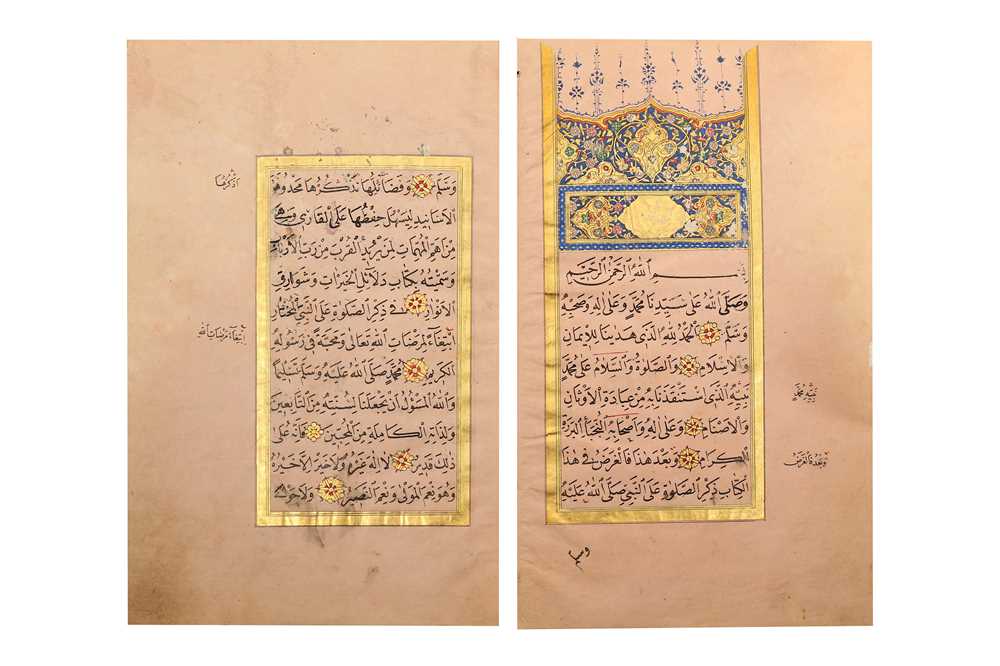 بسم الله الرحمن الرحيم
وصلى الله على سيدنا محمد وعلى اله وصحبه
وسلم الحمد لله الذى هدينا للايمان
والاسلام والصلوة والسلام على محمد
نبيه الذى استنقذنا به من عبادة الاوثان
والاصنام وعلى اله واصحابه النجباء البررة
الكرام وبعد هذا فالغرض فى هذا
الكتاب ذكر الصلوة على النبى صلى الله عليه
نبيه محمد
وبعد فالغرض
وسلم
وسلم وفضائلها نذكرها محذوفة
الاسانيد ليسهل حفظها على القارى وهى
من اهم المهمات لمن يريد القرب من رب الارباب
وسميته بكتاب دلائل الخيرات وشوارق
الانوار فى ذكر الصلوة على النبى المختار
ابتغاء لمرضات الله تعالى ومحبة فى رسوله
الكريم محمد صلى الله عليه وسلم تسليما
والله المسؤل ان يجعلنا لسنته من التابعين
ولذاته الكاملة من المحبين فانه على
ذلك قدير لا اله غيره ولا خير الا خيره
وهو نعم المولى ونعم النصير ولا حول
ابتغاء مرضات الله